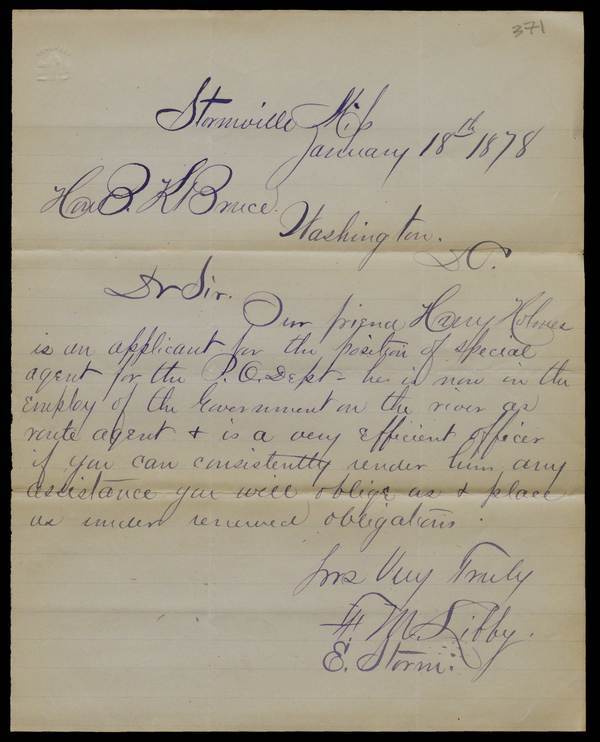 371
Stormville Mis
January 18th 1878
Hon B. K Bruce.
Washington.
D.C.
Dr Sir.
Our friend Harry Holmes
is an applicant for the position of special
agent for the P.O. Dept - he is now in the
Employ of the Government on the river as
route agent & is a very Efficient officer
if you can consistently render him any
assistance you will oblige us & place
us under renewed obligations.
Yrs Very Truly
F. M. Libby.
E. Storm.